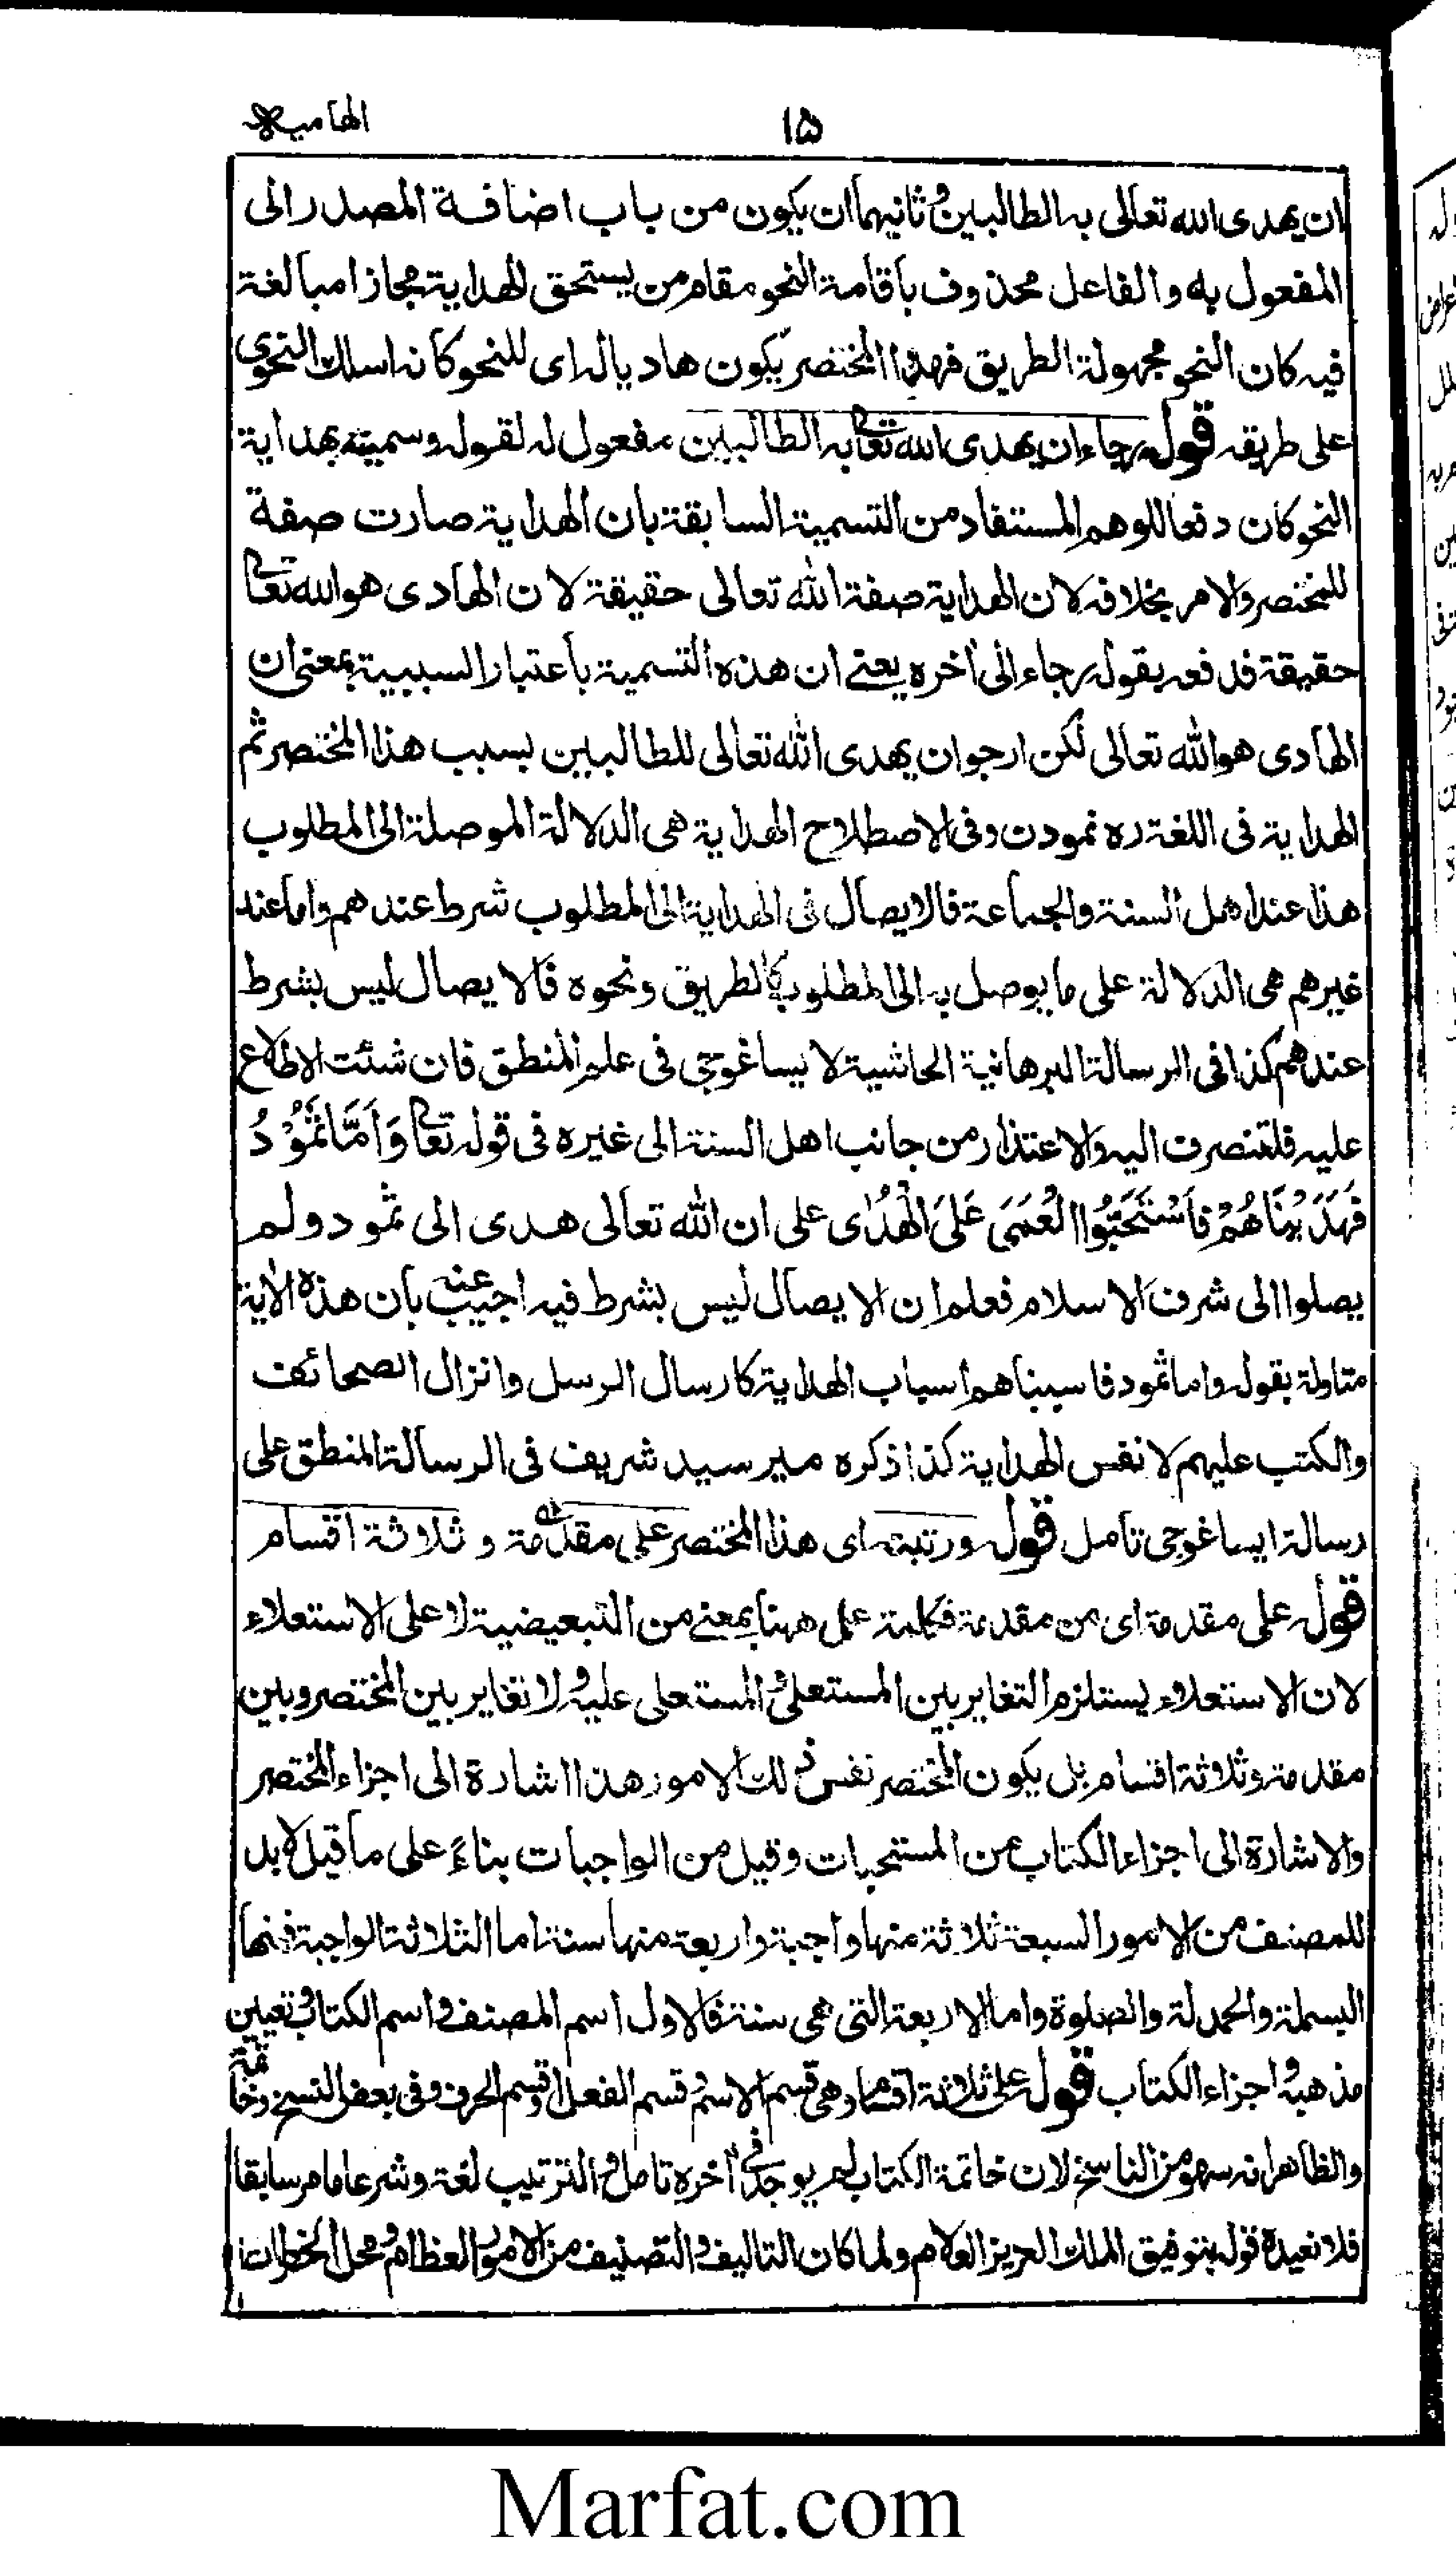 الهامیه
۱۵
ان يهدى الله تعالى به الطالبين وثانيهما ان يكون من باب اضافة المصدر الى
المفعول به والفاعل محذوف باقامة النحو مقام من يستحق الهداية مجازا مبالغة
فيه كان النحو مجهولة الطريق فهذا المختصر يكون هاديا له اى للنحو كانه اسلك النحوى
على طريقه قوله رجاء ان يهدى الله تعالى به الطالبين مفعول له لقوله وسميته بهداية
النحو كان دفعا للوهم المستفاد من التسمية السابقة بان الهداية صارت صفة
للمختصر والامر بخلافه لان الهداية صفة الله تعالى حقيقة لان الهادى هو الله تعالى
حقيقة فدفعه بقوله رجاء الى اخره يعنے ان هذه التسمية باعتبار السببية بمعنى ان
الهادى هو الله تعالى لكن ارجو ان يهدى الله تعالى للطالبين بسبب هذا المختصر ثم
الهداية فى اللغة ره نمودن وفى الاصطلاح الهداية هى الدلالة الموصلة الى المطلوب
هذا عند اهل السنة والجماعة فالايصال فى الهداية الى المطلوب شرط عندهم واما عند
غيرهم هى الدلالة على ما يوصل به الى المطلوب كالطريق ونحوه فالايصال ليس بشرط
عندهم كذا فى الرسالة البرهانية الحاشية لايساغوجى فى علم المنطق فان شئت الاطلاع
عليه فلتنصرف اليه والاعتذار من جانب اهل السنة الى غيره فى قوله تعالى وَاَمَّا ثَمُوْدُ
فَهَدَيْنَاهُمْ فَاسْتَحَبُّوا الْعَمَى عَلَى الْهُدٰى على ان الله تعالى هدى الى ثمود ولم
يصلوا الى شرف الاسلام فعلم ان الايصال ليس بشرط فيه اجيب عنه بان هذه الاية
متاولة بقوله واما ثمود فاسببناهم اسباب الهداية كارسال الرسل وانزال الصحائف
والكتب عليهم لا نفس الهداية كذا ذكره مير سيد شريف فى الرسالة المنطق على
رسالة ايساغوجى تامل قوله ورتبته اى هذا المختصر على مقدمة وثلاثة اقسام
قوله على مقدمة اى من مقدمة فكلمة على ههنا بمعنے من التبعيضية لا على الاستعلاء
لان الاستعلاء يستلزم التغاير بين المستعلى والمستعلى عليه ولا تغاير بين المختصر وبين
مقدمة وثلاثة اقسام بل يكون المختصر نفس ذلك الامور هذا اشارة الى اجزاء المختصر
والاشارة الى اجزاء الكتاب من المستحبات وقيل من الواجبات بناءً على ما قيل لابد
للمصنف من الامور السبعة ثلاثة منها واجبة واربعة منها سنة اما الثلاثة الواجبة فمنها
البسملة والحمدلة والصلوة واما الاربعة التى هى سنة فالاول اسم المصنف واسم الكتاب وتعيين
مذهبه واجزاء الكتاب قوله على ثلاثة اقسام وهى قسم الاسم وقسم الفعل وقسم الحرف وفى بعض النسخ وخاتمة
والظاهر انه سهو من الناسخ لان خاتمة الكتاب لم يوجد فى اخره تامل والترتيب لغة وشرعا مامر سابقا
فلا نعيده قوله بتوفيق الملك العزيز العلام ولما كان التاليف والتصنيف من الامور العظام ومحل الخطرات
Marfat.com